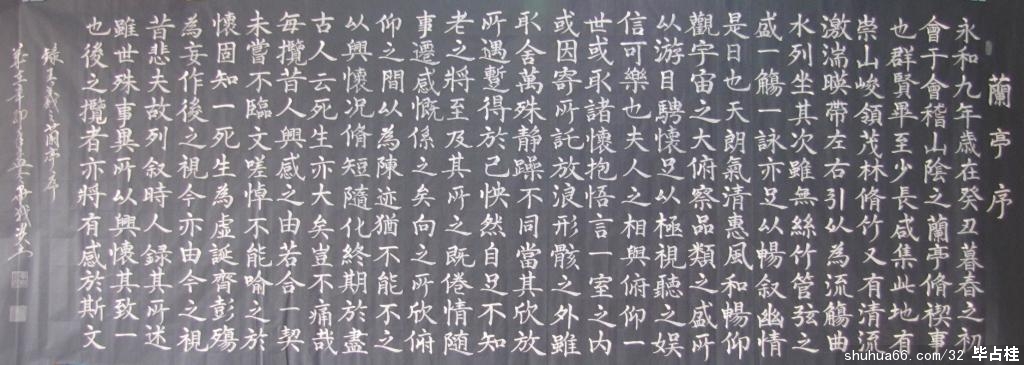 蘭亭序
永和九年歲在癸丑暮春之初
會于會稽山陰之蘭亭脩禊事
也群賢畢至少長咸集此地有
崇山峻領茂林脩竹又有清流
激湍暎帶左右引以為流觴曲
水列坐其次雖無絲竹管弦之
盛一觴一詠亦足以暢叙幽情
是日也天朗氣清惠風和暢仰
觀宇宙之大俯察品類之盛所
以游目騁懷足以極視聽之娛
信可樂也夫人之相與俯仰一
世或取諸懷抱悟言一室之内
或因寄所託放浪形骸之外雖
取舍萬殊静躁不同當其欣放
所遇蹔得於己怏然自足不知
老之將至及其所之既倦情隨
事遷感慨係之矣向之所欣俯
仰之間以為陳迹猶不能不之
以興懷况脩短隨化終期於盡
古人云死生亦大矣豈不痛哉
每攬昔人興感之由若合一契
未嘗不臨文嗟悼不能喻之於
懷固知一死生為虛誕齊彭殤
為妄作後之視今亦由今之視
昔悲夫故列叙時人録其所述
雖世殊事異所以興懷其致一
也後之攬者亦將有感於斯文
録王羲之蘭亭序
shuhua66.com/32 毕占桂